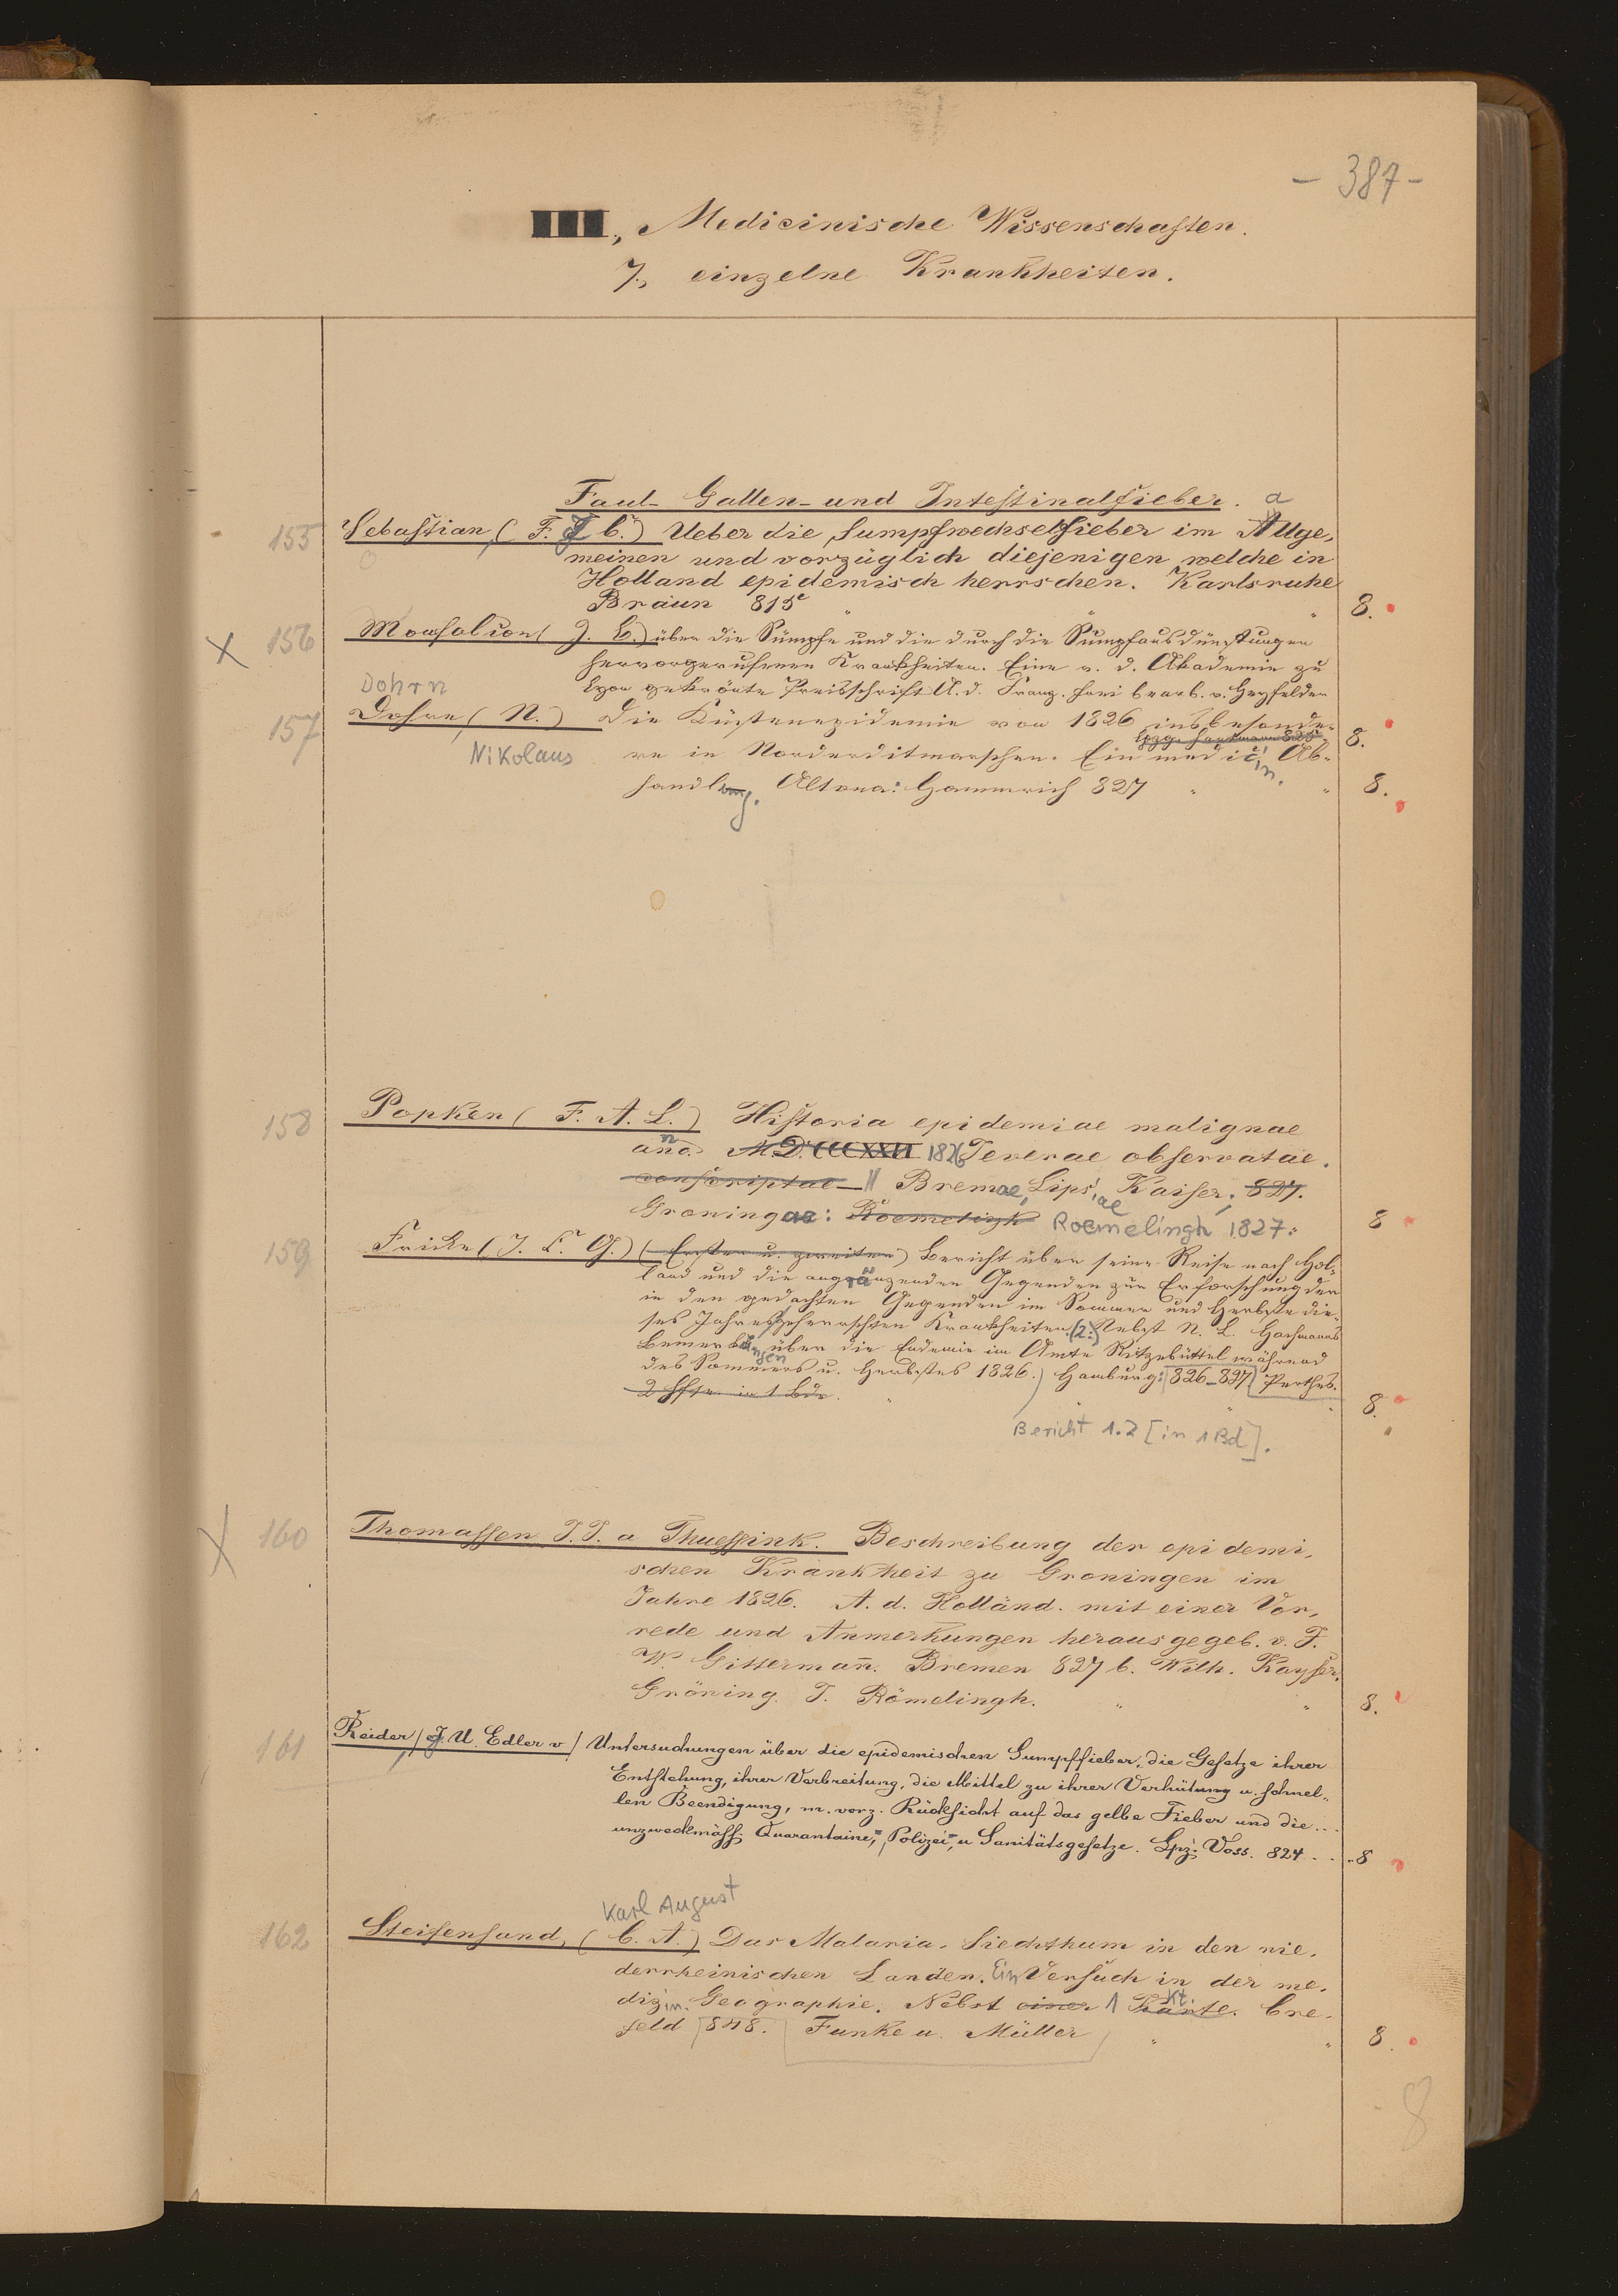 - 387 -
III., Medicinische Wissenschaften.
7., einzelne Krankheiten.
Faul- Gallen- und Intestinalfieber. a
155 Sebastian, (F. J. C.) Ueber die Sumpfwechselfieber im Allge-
meinen und vorzüglich diejenigen welche in
Holland epidemisch herrschen. Karlsruhe
Braun 815 " " " 8.
X 156 Monfalcon (J. B.) über die Sümpfe und die durch die Sumpfausdünstungen
hervorgerufenen Krankheiten. Eine v. d. Akademie zu
Lyon gekrönte Preisschrift A. d. Franz. frei bearb. v. Heyfelder
Lpzg. Hartmann 825 8.
Dohrn
157 Dohrn (N.) Die Küstenepidemie von 1826 insbesonde-
Nikolaus re in Norderditmarschen. Ein medicin. Ab-
handlung. Altona: Hammerich 827 " " 8.
158 Popken (F. A. L.) Historia epidemiae malignae
anno. M.D.CCCXXVI 1826 Jeverae observatae.
conscriptae - || Bremae, Lips', Kaiser. 827.
Groningae: Roemelingh Roemelingh 1827: 8
159 Fricke (J. C. G.) (Erster u. zweiter) Bericht über seine Reise nach Hol-
land und die angränzenden Gegenden zur Erforschung der
in den gedachten Gegenden im Sommer und Herbste die-
ses Jahres geherrschten Krankheiten. (2:) Nebst N. L. Hachmanns
Bemerkungen über die Endemie im Amte Ritzebüttel während
des Sommers u. Herbstes 1826.) Hamburg: 826-827. Perthes.
2 Hfte. in 1 Bde. " " " 8.
Bericht 1.2 [in 1 Bd].
X 160 Thomassen J. J. a Thuessink. Beschreibung der epidemi-
schen Krankheit zu Groningen im
Jahre 1826. A. d. Holländ. mit einer Vor-
rede und Anmerkungen herausgegeb. v. F.
W. Gittermañ. Bremen 827 b. Wilh. Kayser.
Gröning. J. Römelingh. " " 8.
161 Reider / J. U. Edler v / Untersuchungen über die epidemischen Sumpffieber, die Gesetze ihrer
Entstehung, ihrer Verbreitung, die Mittel zu ihrer Verhütung u. schnel-
len Beendigung, m. vorz. Rücksicht auf das gelbe Fieber und die ...
unzweckmäss. Quarantaine=, Polizei=, u Sanitätsgesetze. Lpz: Voss. 824 . . . 8
Karl August
162 Steifensand, (C. A.) Das Malaria-Siechthum in den nie-
derrheinischen Landen. Ein Versuch in der me-
dizin. Geographie. Nebst einer 1 Karte. Kt. Cre-
feld 848. Funke u. Müller " " 8.
8